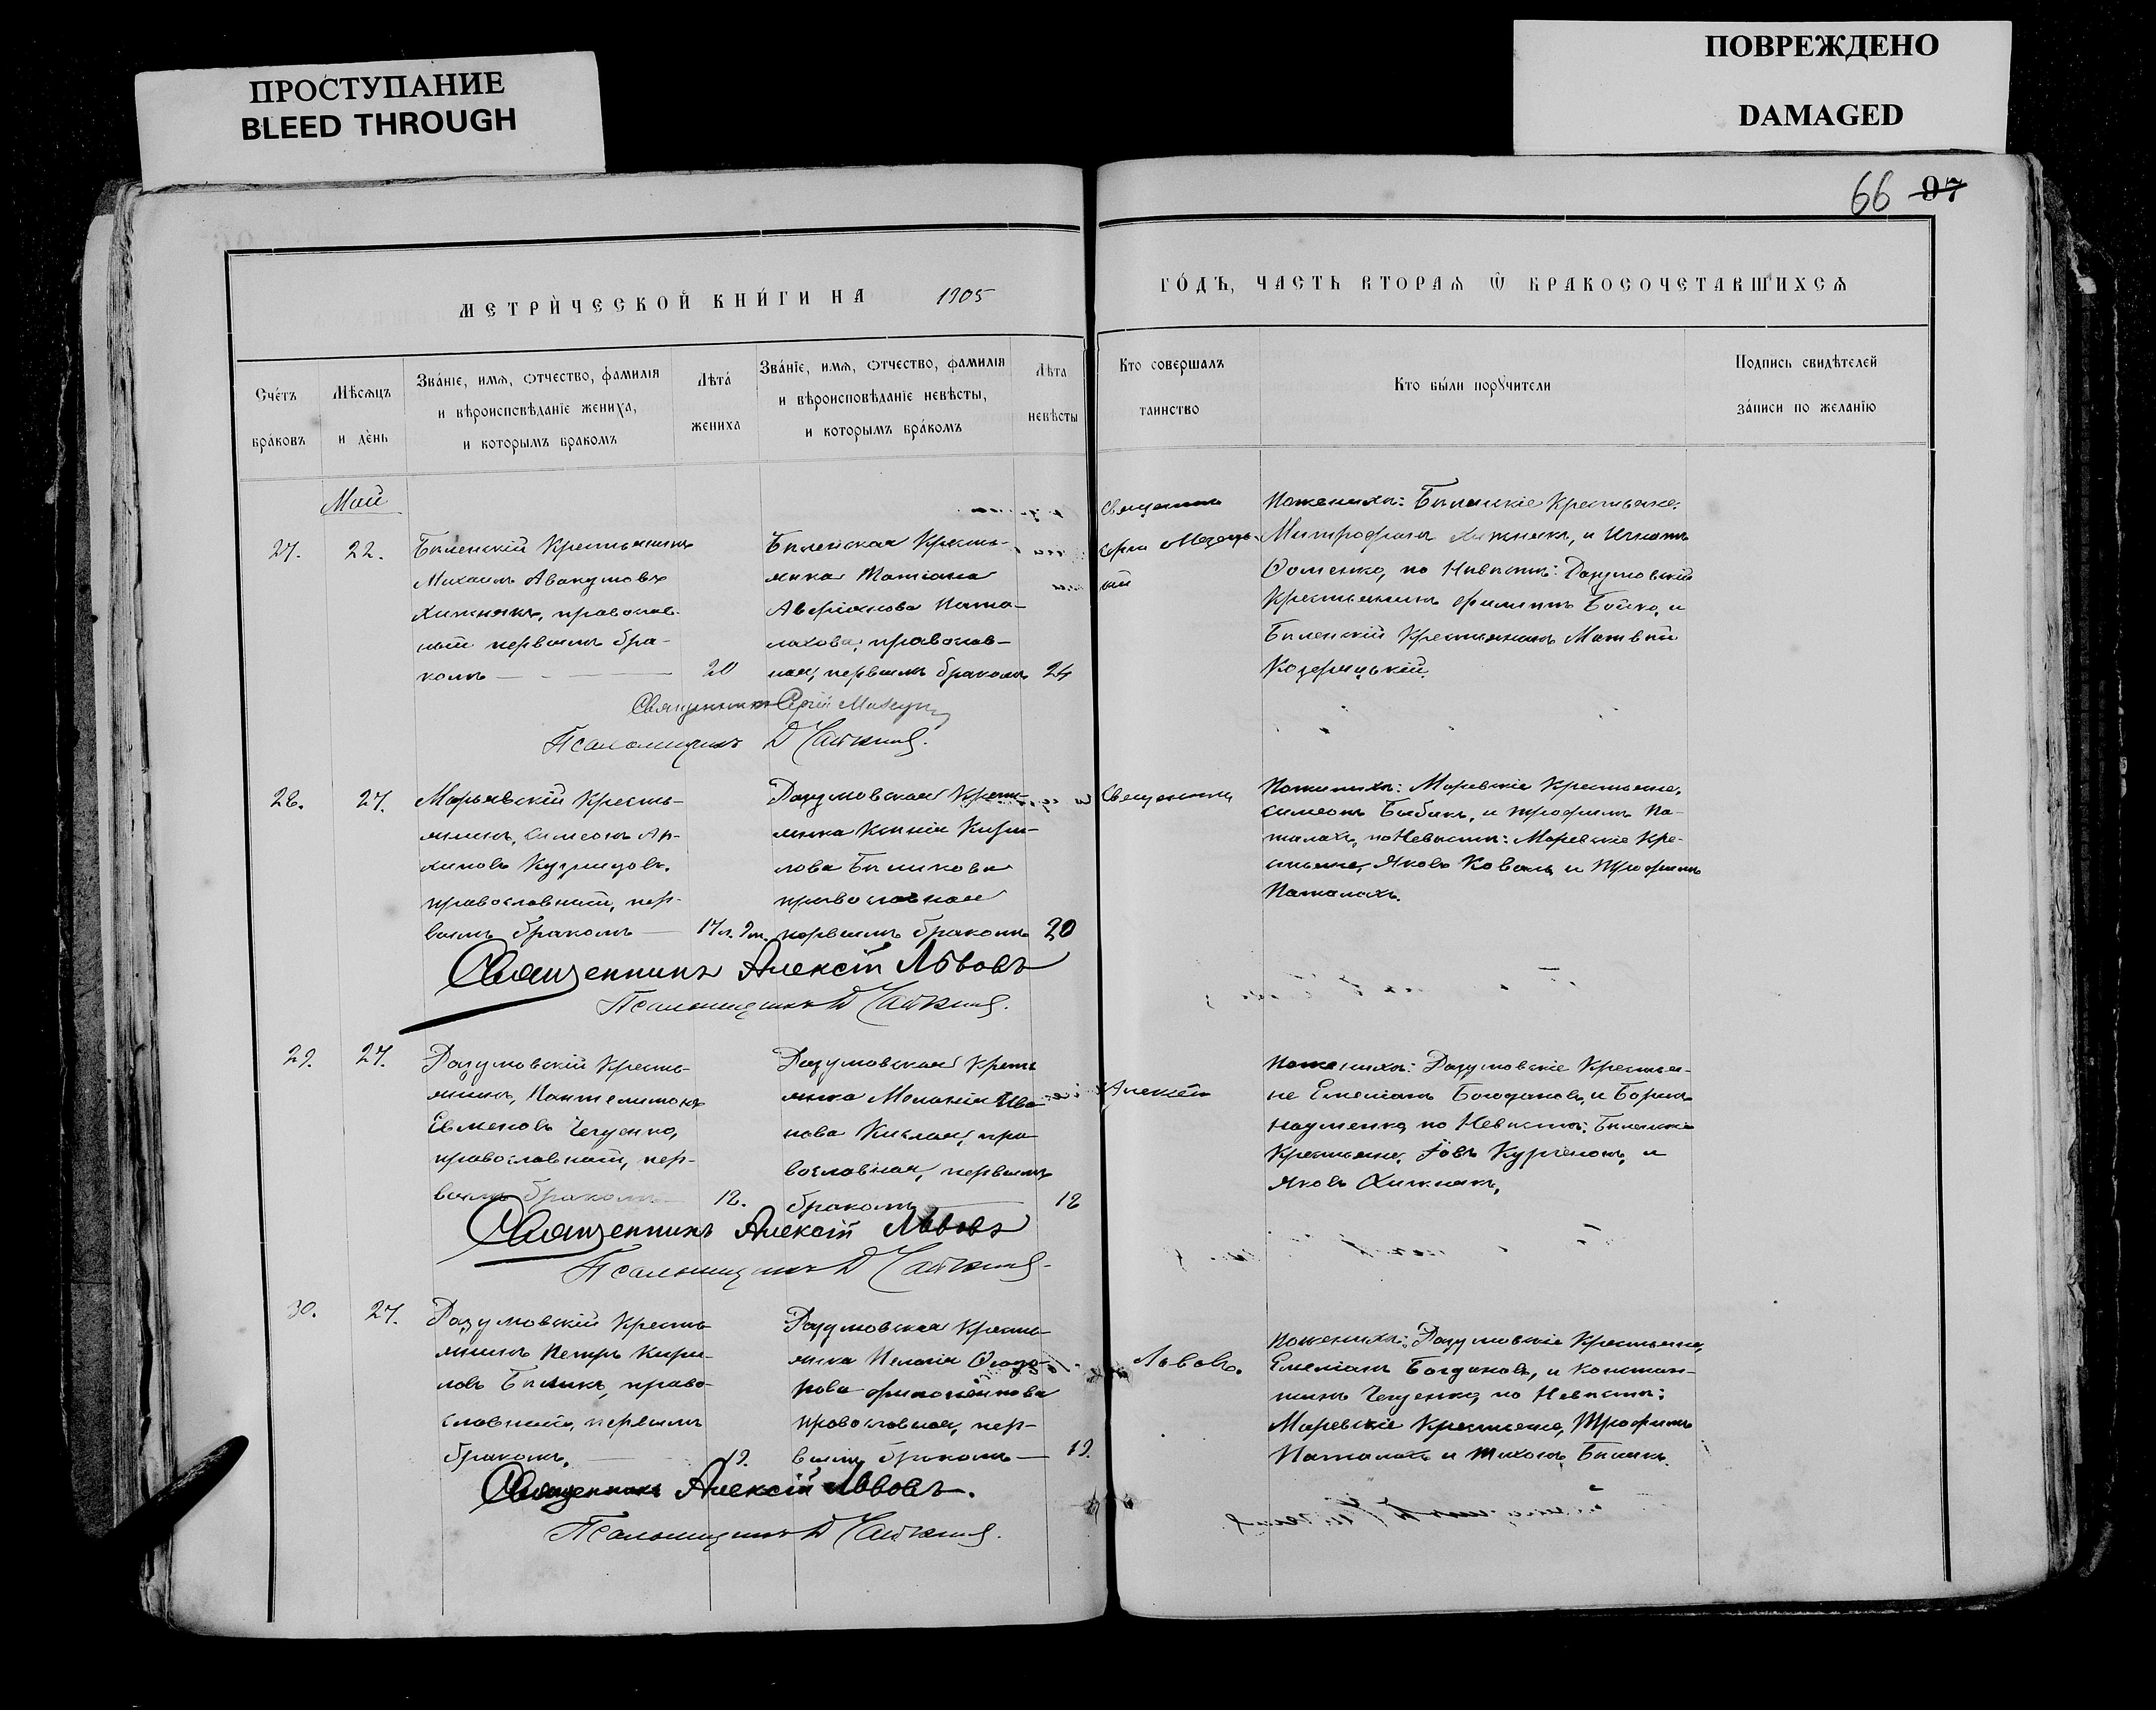 ПРОСТУПАНИЕ
BLEED THROUGH
ПОВРЕЖДЕНО
DAMAGED
66 97
МЕТРИ́ЧЕСКОЙ КНИ́ГИ НА 1905
ГО́ДЪ, ЧАСТЬ ВТОРАѦ Ѿ БРАКОСОЧЕТАВШИХСѦ
Сче́тъ
бра́ковъ
Мѣ́сѧцъ
и де́нь
Зва́нїе, имѧ, ѻтчество, фамилїѧ
и вѣроисповѣ́данїе жениха̀,
и которымъ бракомъ
Лѣта́
жениха
Зва́нїе, имѧ, ѻтчество, фамилїѧ
и вѣроисповѣ́данїе невѣ́сты,
и которымъ бра́комъ
Лѣта
невѣ́сты
Кто совершалъ
таинство
Кто бы́ли порꙋчители
Подпись свидѣ́телей
за́писи по желанїю
Май
27. 22.
Биленскій Крестьянинъ
Михаилъ Авакумовъ
Хижнякъ, православ-
ный первымъ бра-
комъ 20
Биленская Кресть-
янка Татіана
Аверіанова Пата-
лахова, православ-
ная, первымъ бракомъ 24
Священникъ
Поженихъ: Биленскіе Крестьяне:
Митрофанъ Хижнякъ, и Игнатъ
Ѳоменко, по Невѣстѣ: Разумовскій
Крестьянинъ Филиппъ Бойко, и
Биленскій Крестьянинъ Матвѣй
Священникъ Сергій
Псаломщикъ Д
28. 27.
Марьевскій Кресть-
янинъ, Симеонъ Ар-
хиповъ
православный, пер-
вымъ бракомъ 17л. 9м.
Разумовская Кресть-
янка Ксенія Кири-
лова Биликова
православная
первымъ бракомъ 20
Священникъ
Поженихъ: Марьевскіе Крестьяне,
Симеонъ Бибикъ, и Трофимъ Па-
талахъ, по Невѣстѣ: Марьевскіе Кре-
стьяне, Яковъ Коваль и Трофимъ
Паталахъ.
Священникъ Алексій Львовъ
Псаломщикъ Д
29. 27.
Разумовскій Кресть-
янинъ, Пантелимонъ
Евменовъ
православный, пер-
вымъ бракомъ 18.
Разумовская Кресть-
янка Меланія Ива-
нова пра-
вославная, первымъ
бракомъ 18
Алексій
Поженихъ: Разумовскіе Крестья-
не Емеліанъ Богдановъ, и Борисъ
Науменко, по Невѣстѣ: Биленскіе
Крестьяне, Іовъ Курченокъ, и
Яковъ Хижнякъ.
Священникъ Алексій Львовъ
Псаломщикъ Д
30. 27.
Разумовскій Кресть-
янинъ Петръ Кири-
ловъ Биликъ, право-
славный, первымъ
бракомъ. 19.
Разумовская Кресть-
янка Пелагія Ѳеодо-
рова
православная, пер-
вымъ бракомъ 19.
Львовъ.
Поженихъ: Разумовскіе Крестьяне,
Емеліанъ Богдановъ, и Констан-
тинъ по Невѣстѣ:
Марьевскіе Крестьяне, Трофимъ
Паталахъ и Тихонъ Биликъ.
Священникъ Алексій Львовъ.
Псаломщикъ Д